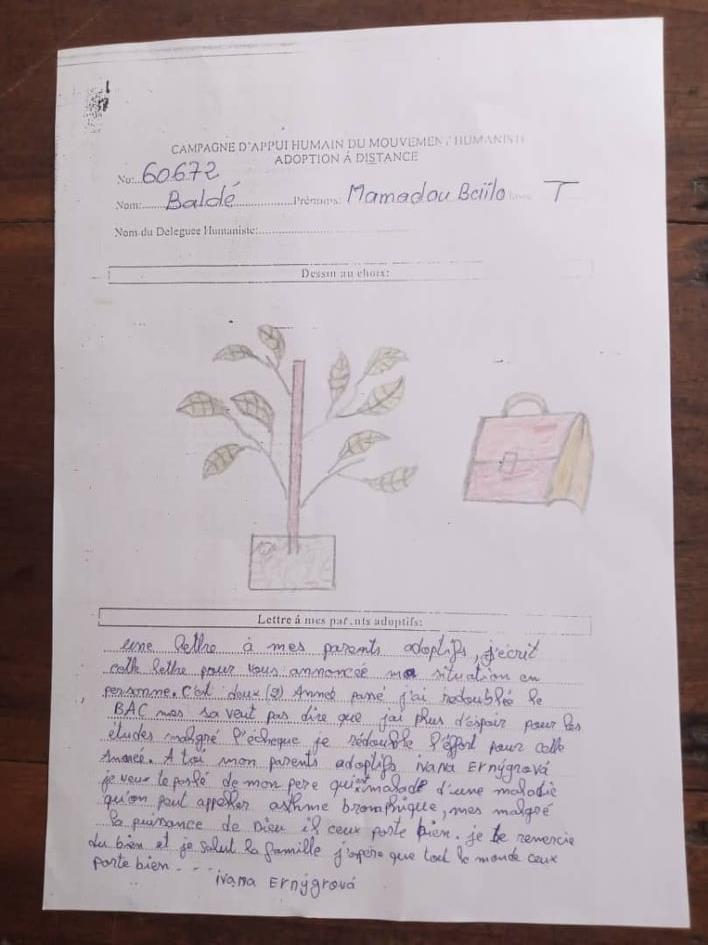 CAMPAGNE D'APPUI HUMAIN DU MOUVEMENT HUMANISTE
ADOPTION Á DISTANCE
No:...60672
Nom:......Baldé......Prénoms: Mamadou Bailo T
Nom du Deleguee Humaniste:
Dessin au choix:
Lettre á mes parents adoptifs:
une lettre à mes parents adoptifs, j'écrit
cette lettre pour vous annoncée ma situation en
personne. C'est deux (2) Année passé j'ai redoublée le
BAC mes sa veut pas dire que j'ai plus d'espoir pour les
études malgré l'écheque je rédouble l'éffort pour cette
Année. A toi mon parents adoptifs ivana ERnýgrová
je veux te parlé de mon pere qui est malade d'une maladie
qu'on peut appeller asthme bromphique, mes malgré
la puissance de Dieu il ceux porte bien. je te remercie
du bien et je salut la famille j'espère que tout le monde ceux
porte bien...
ivana ERnýgrová